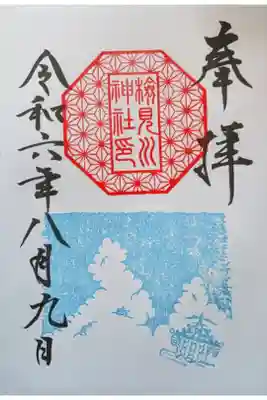 奉拝
検見川
神社印
令和六年八月九日